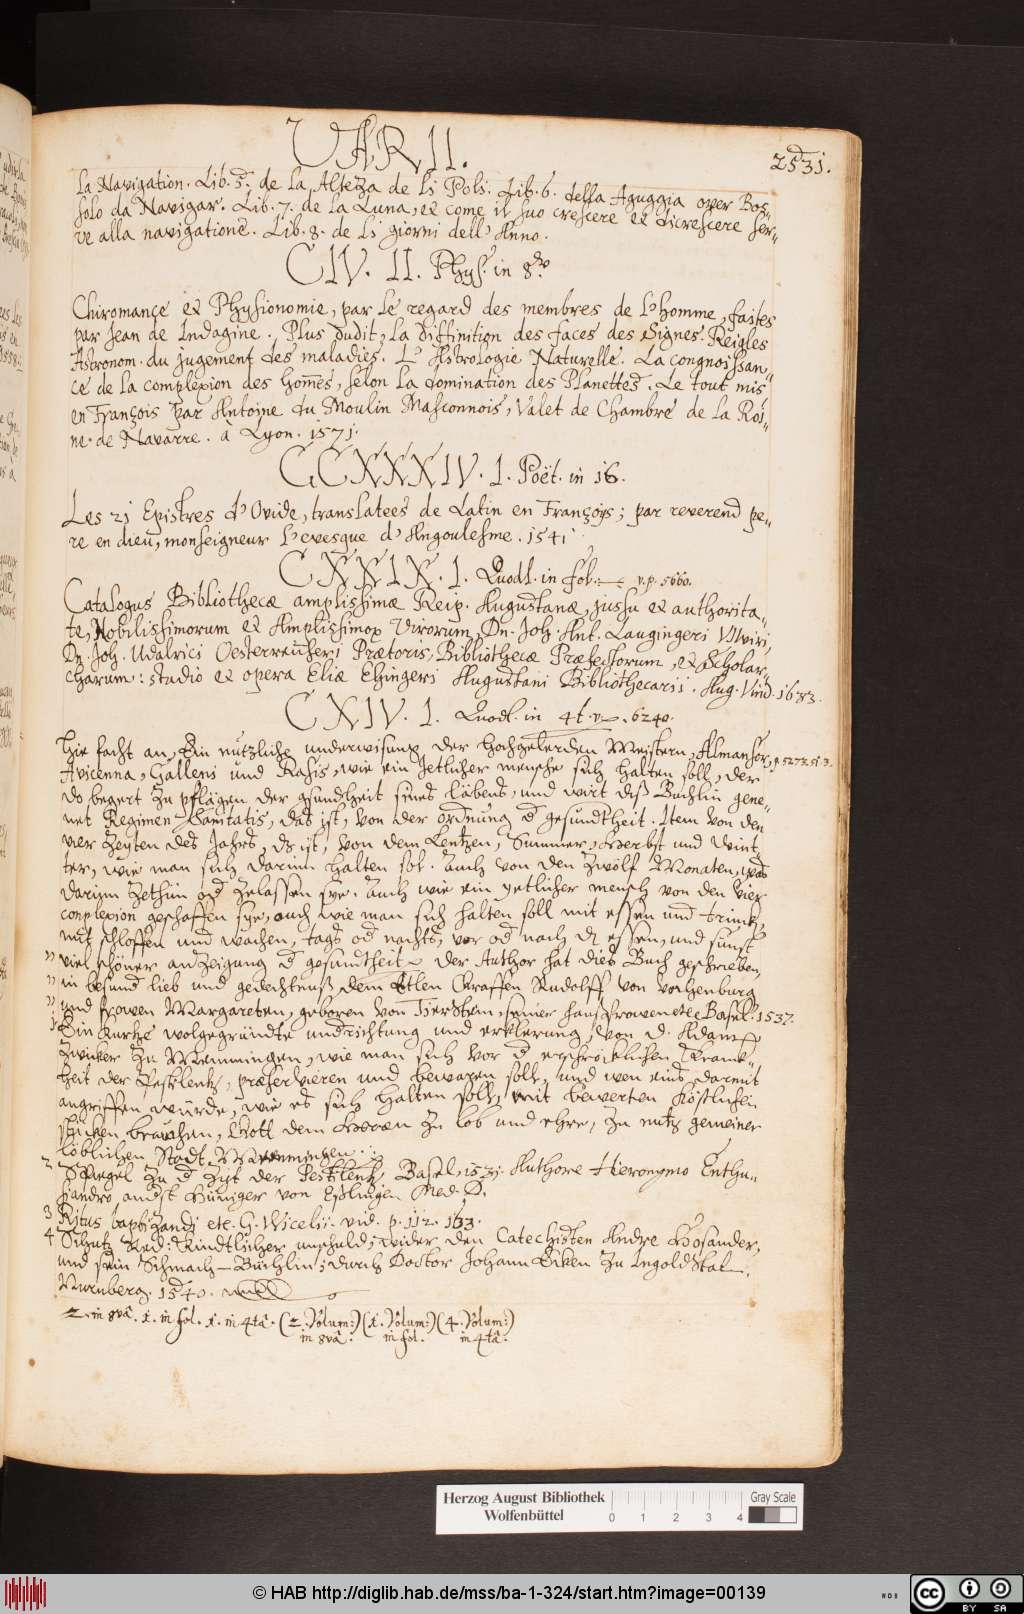 VARII.
2531.
la Navigation. Lib. 5. de la Altezza de li Poli. Lib. 6. della Aguggia over Bos=
solo da Navigar. Lib. 7. de la Luna, et come il suo crescere et dicrescere ser=
ve alla navigatione. Lib. 8. de li giorni dell' Anno.
CIV. II. Phys. in 8vo
Chiromance et Physionomie, par le regard des membres de l'homme, faites
par Jean de Indagine. Plus dudit, la diffinition des faces des Signes. Reigles
Astronom. du jugement des maladies. L' Astrologie Naturelle. La congnoissan=
ce de la complexion des homes, selon la domination des Planettes. Le tout mis
en François par Antoine du Moulin Masconnois, Valet de Chambre de la Roi=
ne de Navarre. à Lyon. 1571.
CCXXXIV. 1. Poët. in 16.
Les 21 Epistres d'Ovide, translatees de Latin en Françoys; par reverend pe=
re en dieu, monseigneur l'evesque d'Angoulesme. 1541
CXXIX. 1. Quodl. in fol. v. p. 5660.
Catalogus Bibliothecæ amplissimæ Reip. Augustanæ, jussu et authorita=
te, Nobilissimorum et Amplissimor Virorum, Dn. Joh. Ant. Laugingeri VIIviri,
Dn. Joh. Udalrici Oesterreicheri Prætoris, Bibliothecæ Præfectorum, et Scholar=
charum: studio et opera Eliæ Ehingeri Augustani Bibliothecarii. Aug. Vind. 1633.
CXIV. 1. Quodl. in 4t. v. p. 6240.
Hie facht an, Ein nützliche underwisung der hochgelerden Meistern, Almansor, p. 5272. 513.
Avicenna, Galleni und Rasis, wie ein jetlicher mensche sich halten soll, der
do begert zu pflägen der gsundtheit sines läbens, und wirt diß Buchlin gene=
net Regimen Sanitatis, das ist, von der ordnung d gesundtheit. Item von den
vier Zeyten des Jahrs, ds ist, von dem Lentzen, Summer, Herbst und Wint
ter, wie man sich darinn halten sol. Auch von den zwölf Monaten, was
darinn zethun od zelassen sye. Auch wie ein yetlicher mensch von den vier
conplexion geschaffen sye, auch wie man sich halten soll mit essen und trincken,
mit schloffen und wachen, tags od nachts, vor od nach dem essen, und sunst
viel schöner anzeigung d gesundtheit. der Author hat dies Buch geschrieben,
in besund lieb und gedechtnuß dem Edlen Graffen Rudolff von Hochenburg
und frowen Margareten, geboren von Tierstein, seiner haußfrowen etc Basel. 1537.
1 Ein kurtze wolgegründte undrichtung und erklerung, von D. Adam
Zwicker zu Memmingen, wie man sich vor d erschröcklichen Kranck=
heit der Pestilentz, præservieren und bewaren soll, und wen eins darmit
angriffen würde, wie es sich halten soll, mit bewerten köstlichen
stucken brauchen, Gott dem Herren zu lob und ehre, zu nutz gemeiner
löblichen Stadt Memmingen.
2 Spiegel zu d Zyt der Pestilentz. Basel, 1531. Authore Hieronymo Enthu=
siandro von Eßlingen Med. D.
3 Ritus baptizandi etc. G. Wicelii. vid. p. 112. 133.
4 Schutz Red: Kindtlicher unschuld; wider den Catechisten Andre Hosander,
und sein Schmach-Büchlin; durch Doctor Johann Ecken zu IngoldStat.
Nurnberg. 1540.
2. in 8vâ. 1. in fol. 1. in 4tâ. (2. Volum:)(1. Volum:)(4. Volum:)
in 8vâ. in fol. in 4tâ.
Herzog August Bibliothek
Wolfenbüttel
0 1 2 3 4
Gray Scale
© HAB http://diglib.hab.de/mss/ba-1-324/start.htm?image=00139
cc BY SA